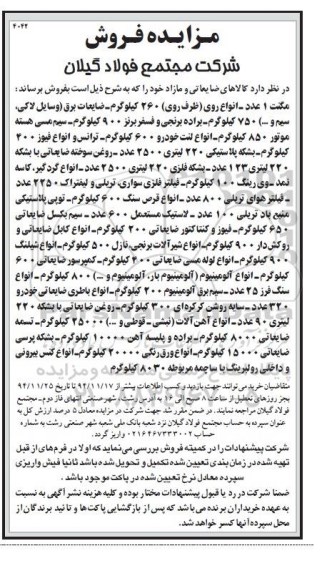 ۴۰۴۲
مزایده فروش
شرکت مجتمع فولاد گیلان
در نظر دارد کالاهای ضایعاتی و مازاد خود را که به شرح ذیل است بفروش برساند:
مگنت ۱ عدد _ انواع روی (ظرف روی) ۲۶۰ کیلوگرم_ضایعات برق (وسایل لاکی،
سیم و ...) ۷۵۰ کیلوگرم_براده برنجی و فسفر برنز ۹۰۰ کیلوگرم_سیم مسی هسته
موتور ۸۵۰ کیلوگرم_انواع لنت خودرو ۶۰۰ کیلوگرم_ترانس و انواع فیوز ۳۰۰
کیلوگرم_بشکه پلاستیکی ۲۲۰ لیتری ۲۵۰۰ عدد _روغن سوخته ضایعاتی با بشکه
۲۲۰ لیتری ۱۲۳ عدد_بشکه فلزی ۲۲۰ لیتری ۲۵۰۰ عدد_انواع گردگیر، کاسه
نمد _وی رینگ ۱۰۰ کیلوگرم_فیلتر فلزی سواری، تریلی و لیفتراک ۲۲۵۰ عدد
_ فیلتر هوای تریلی ۸۰۰ عدد _انواع قرص سنگ ۶۰۰ کیلوگرم_ توپی پلاستیکی
منبع باد تریلی ۱۰۰ عدد_لاستیک مستعمل ۶۰۰ عدد_سیم بکسل ضایعاتی
۶۵۰ کیلوگرم_فیوز و کنتاکتور ضایعاتی ۲۰۰ کیلوگرم_انواع کابل ضایعاتی و
روکش دار ۹۰۰ کیلوگرم_انواع شیرآلات برنجی، نازل ۵۰۰ کیلوگرم_انواع شیلنگ
۹۰۰ کیلوگرم_انواع لوله مسی ضایعاتی ۴۰۰ کیلوگرم_کمپرسور ضایعاتی ۶۰۰
کیلوگرم_انواع آلومینیوم (آلومینیوم بار، آلومینیوم و ...) ۸۰۰ کیلوگرم_انواع
سنگ فرز ۲۵ عدد_سیم برق آلومینیوم ۲۰۰ کیلوگرم_انواع باطری ضایعاتی خودرو
۳۲۰ عدد_سایه روشن کرکره ای ۳۰۰ کیلوگرم_روغن ضایعاتی با بشکه ۲۲۰
لیتری ۹۰ عدد _ انواع آهن آلات (نبشی _ قوطی و ...) ۲۵۰۰۰ کیلوگرم_ تسمه
ضایعاتی ۸۰۰۰ کیلوگرم_براده و پلیسه آهن ۱۰۰۰۰ کیلوگرم_بشکه پرسی
ضایعاتی ۱۵۰۰۰ کیلوگرم_انواع ورق رنگی ۲۰۰۰۰ کیلوگرم_انواع کنس بیرونی
و داخلی رولبرینگ با ساچمه مربوطه ۸۰۳۰ کیلوگرم
متقاضیان خرید می توانند جهت بازدید و کسب اطلاعات بیشتر از ۹۴/۱۱/۱۷ تا تاریخ ۹۴/۱۱/۲۵
بجز روزهای تعطیل از ساعت ۸ صبح الی ۱۶ به آدرس رشت، شهر صنعتی انتهای فاز دوم_مجتمع
فولاد گیلان مراجعه نمایند. در ضمن مقرر شد جهت شرکت در مزایده معادل ۵ درصد ارزش کل به
عنوان سپرده به حساب مجتمع فولاد گیلان نزد شعبه بانک ملی شعبه شهر صنعتی رشت به شماره
حساب ۰۲۱۶۴۶۷۳۳۰۰۲ واریز گردد.
شرکت پیشنهادات را در کمیته فروش بررسی می نماید که اولا در فرم های از قبل
تهیه شده در زمان بندی تعیین شده تکمیل و تحویل شده باشد ثانیا فیش واریزی
سپرده معادل نرخ تعیین شده در پاکت موجود باشد.
ضمنا شرکت در رد یا قبول پیشنهادات مختار بوده و کلیه هزینه نشر آگهی به نسبت
به عهده خریداران برنده می باشد که پس از بازگشایی پاکت ها و تائید برندگان از
محل سپرده آنها کسر خواهد شد.